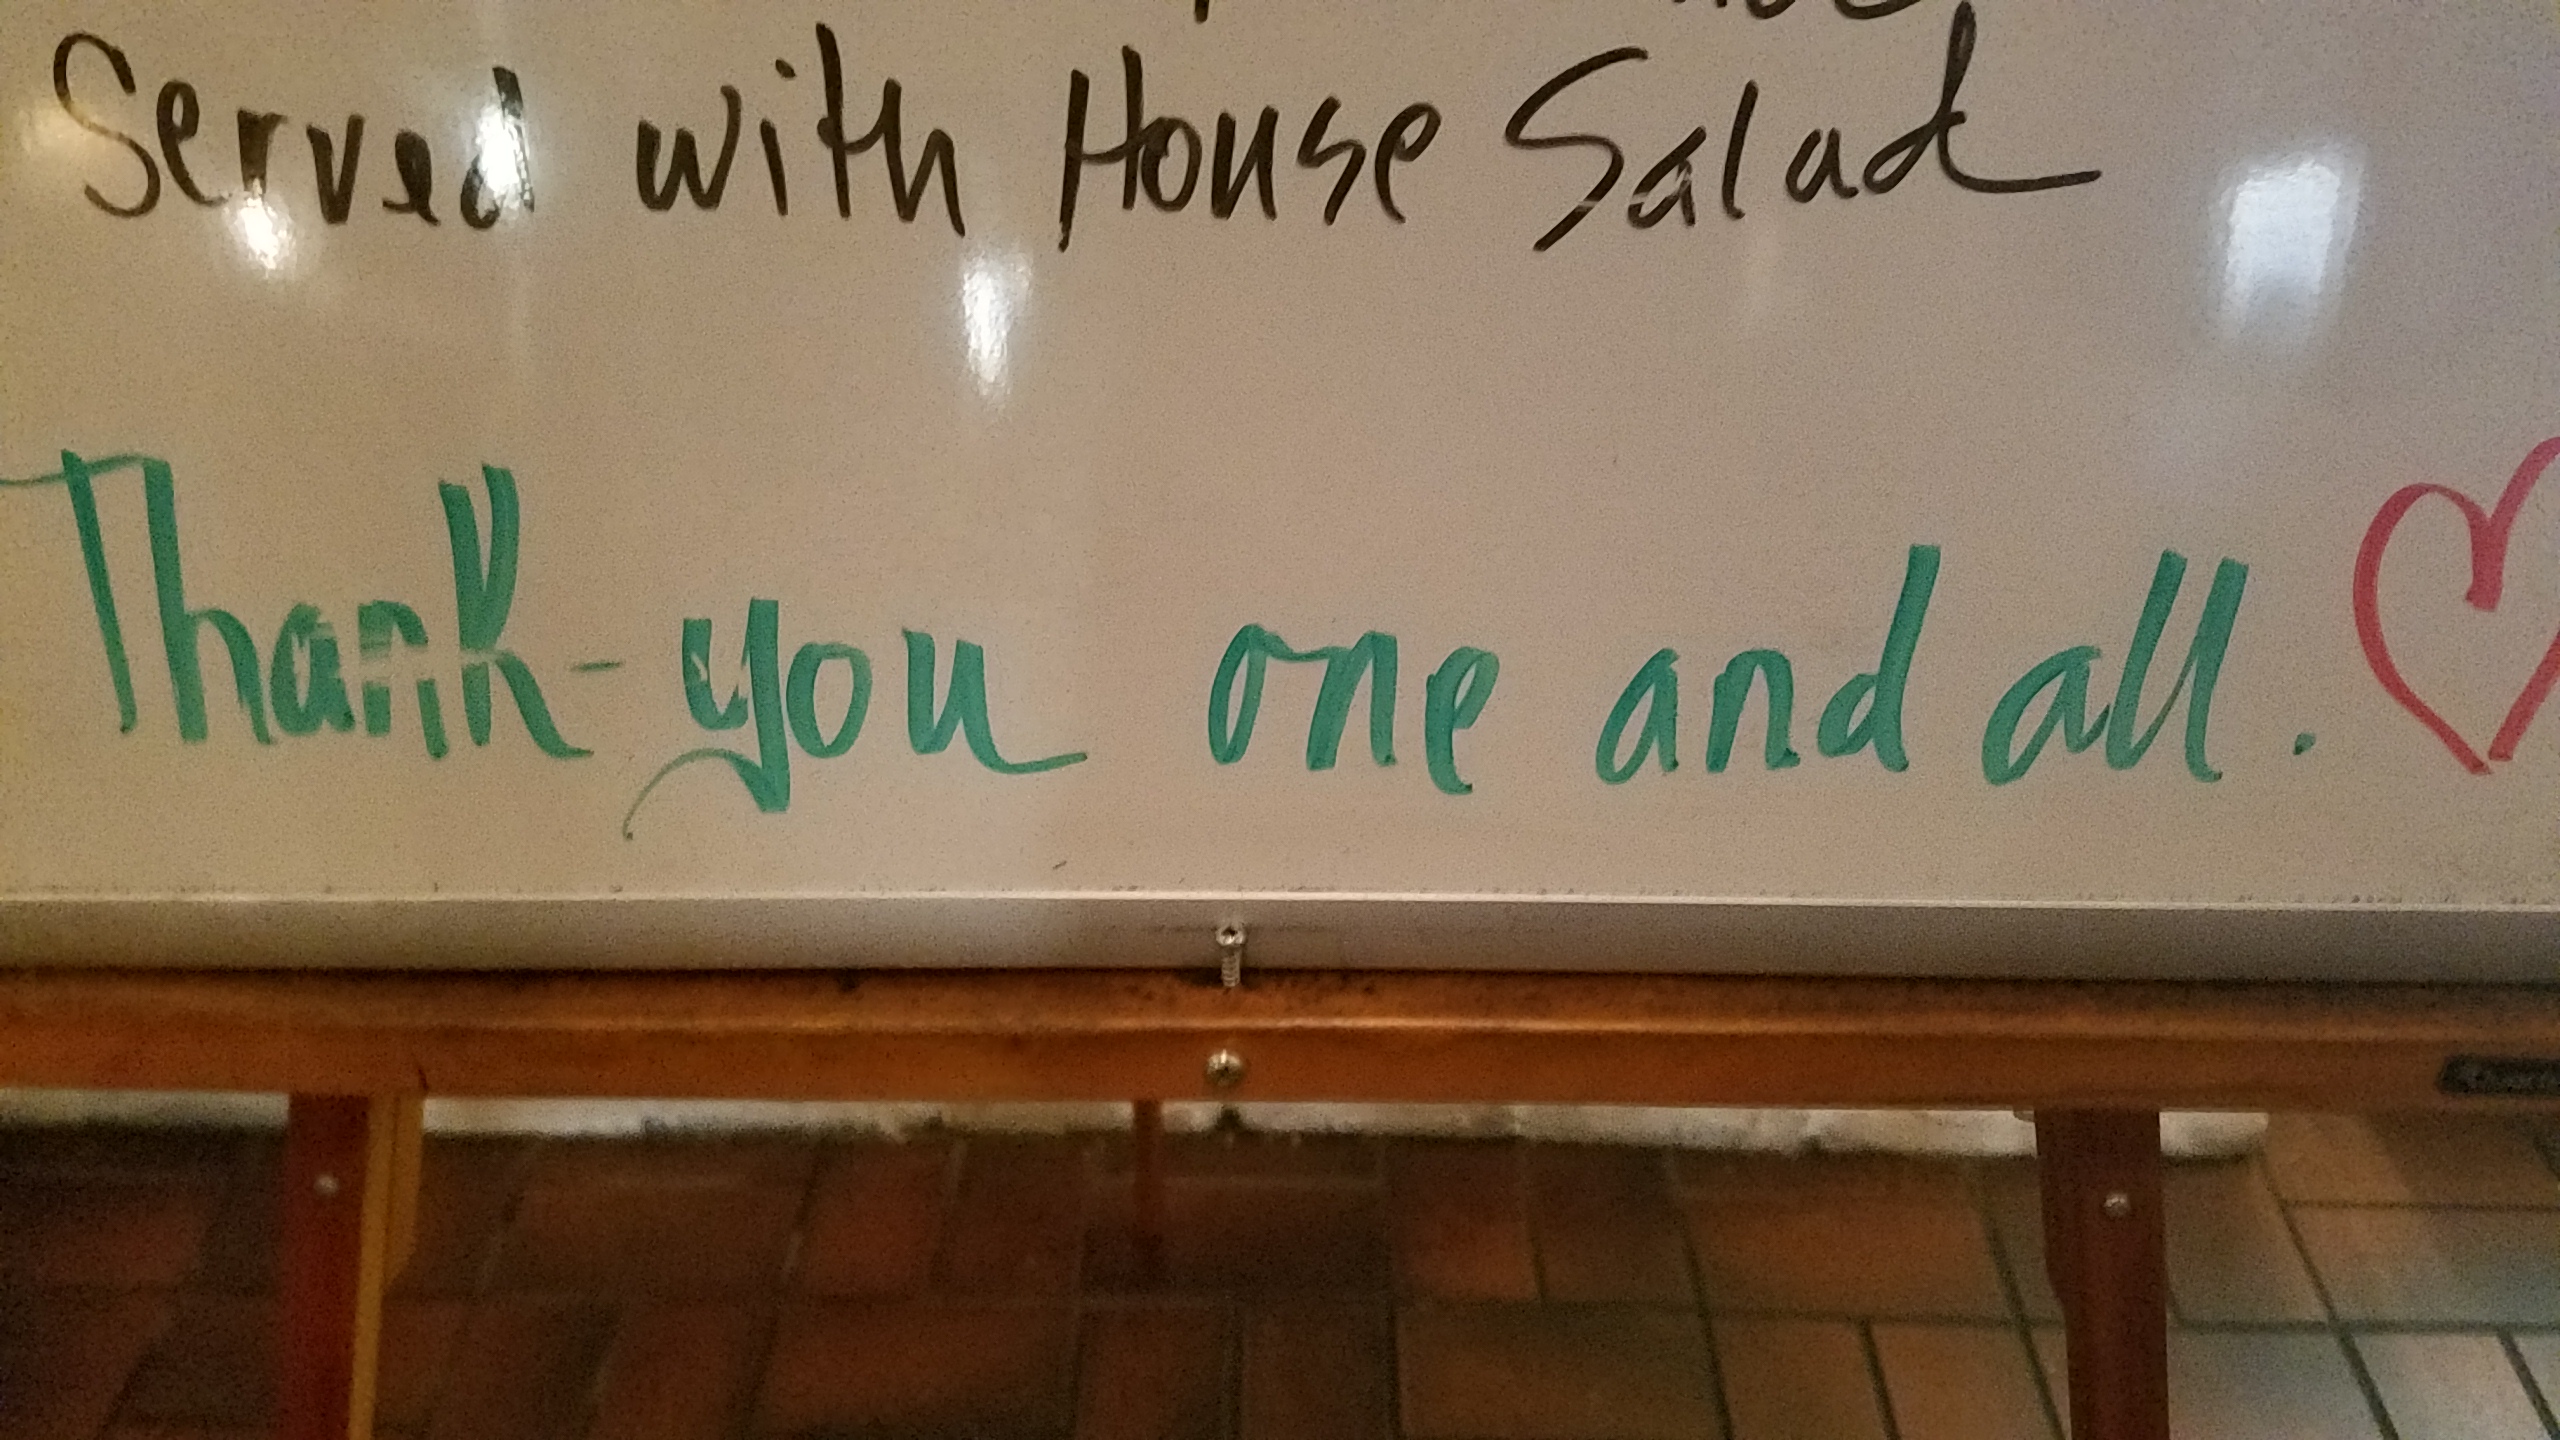 Served with House Salad
Thank-you one and all.